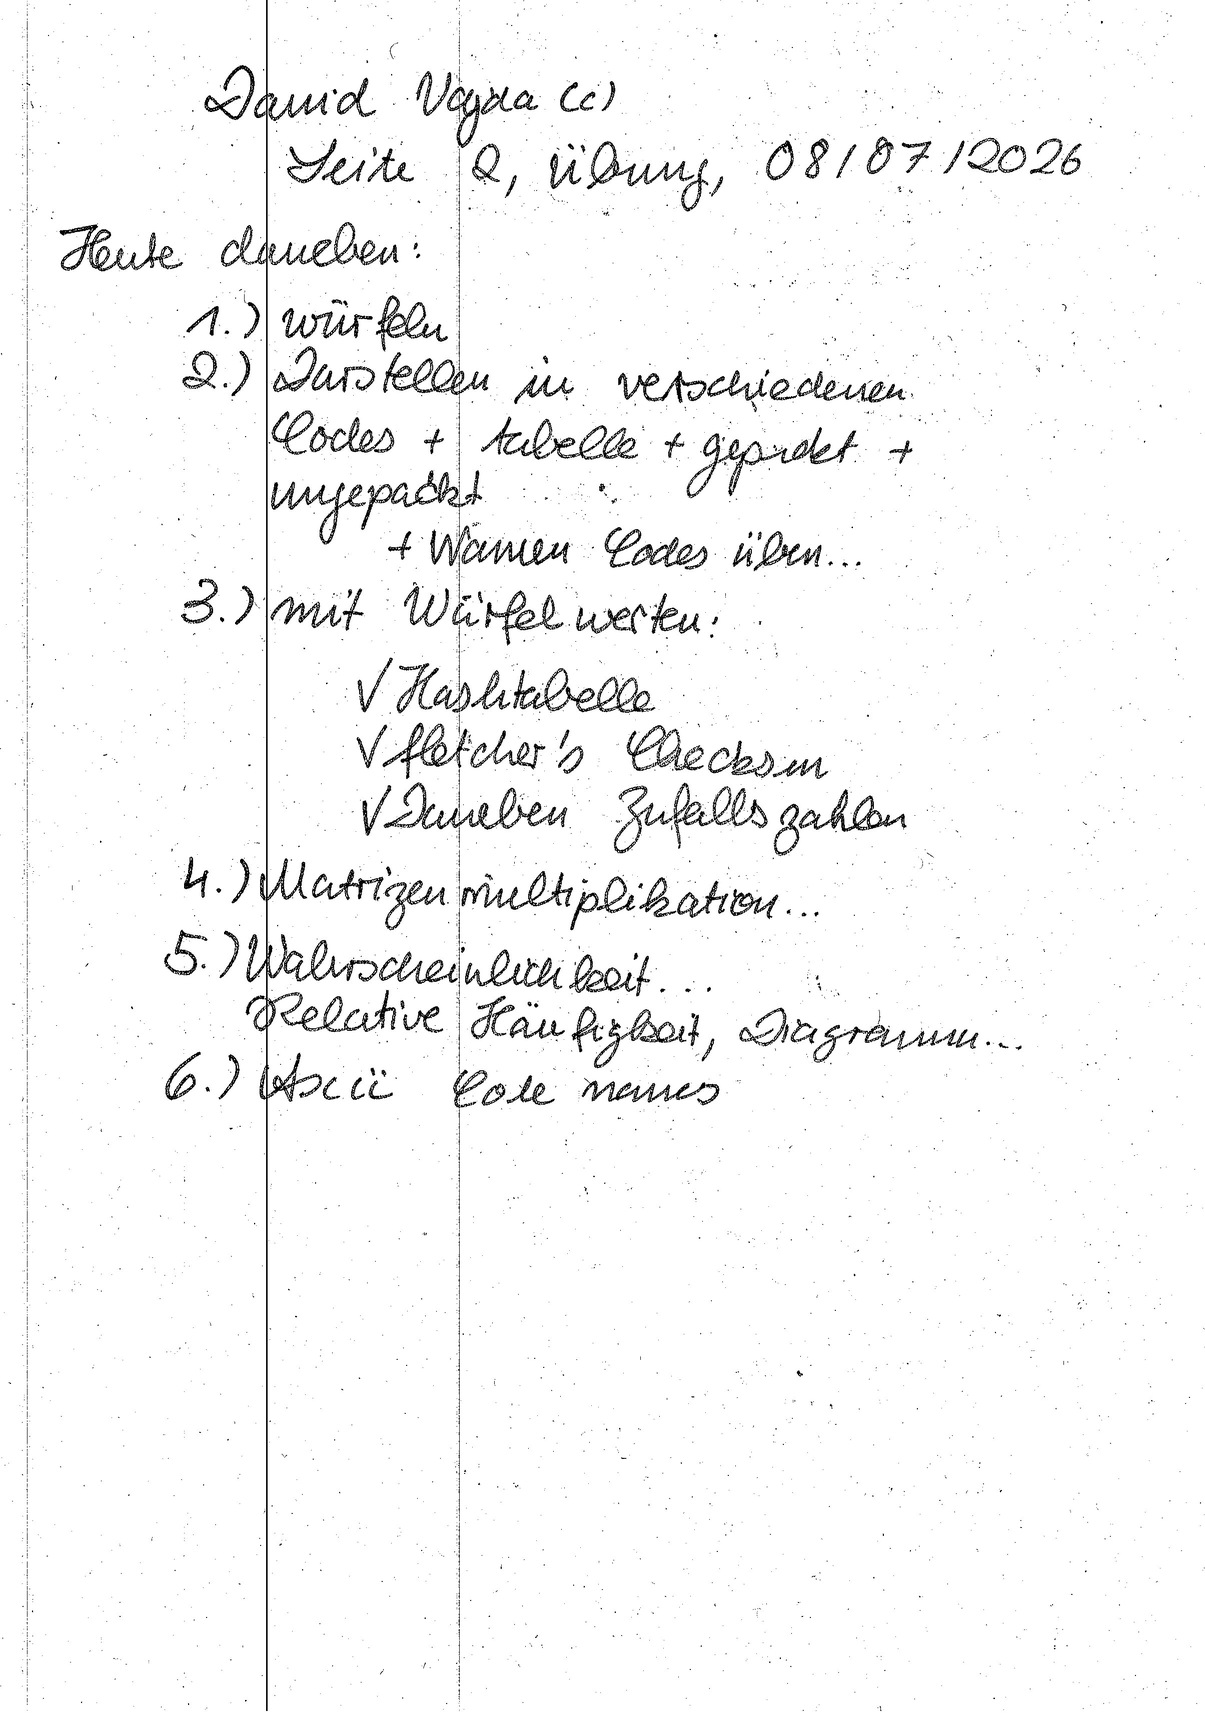 David Vajda (c)
Seite 2, Übung, 08/07/2026
Heute daneben:
1.) würfeln
2.) Darstellen in verschiedenen
Codes + tabelle + gepackt +
ungepackt
+ Namen Codes üben...
3.) mit Würfelwerten:
√ Hashtabelle
√ fletcher's Checksum
√ Daneben Zufallszahlen
4.) Matrizenmultiplikation...
5.) Wahrscheinlichkeit...
Relative Häufigkeit, Diagramm...
6.) Ascii Code names